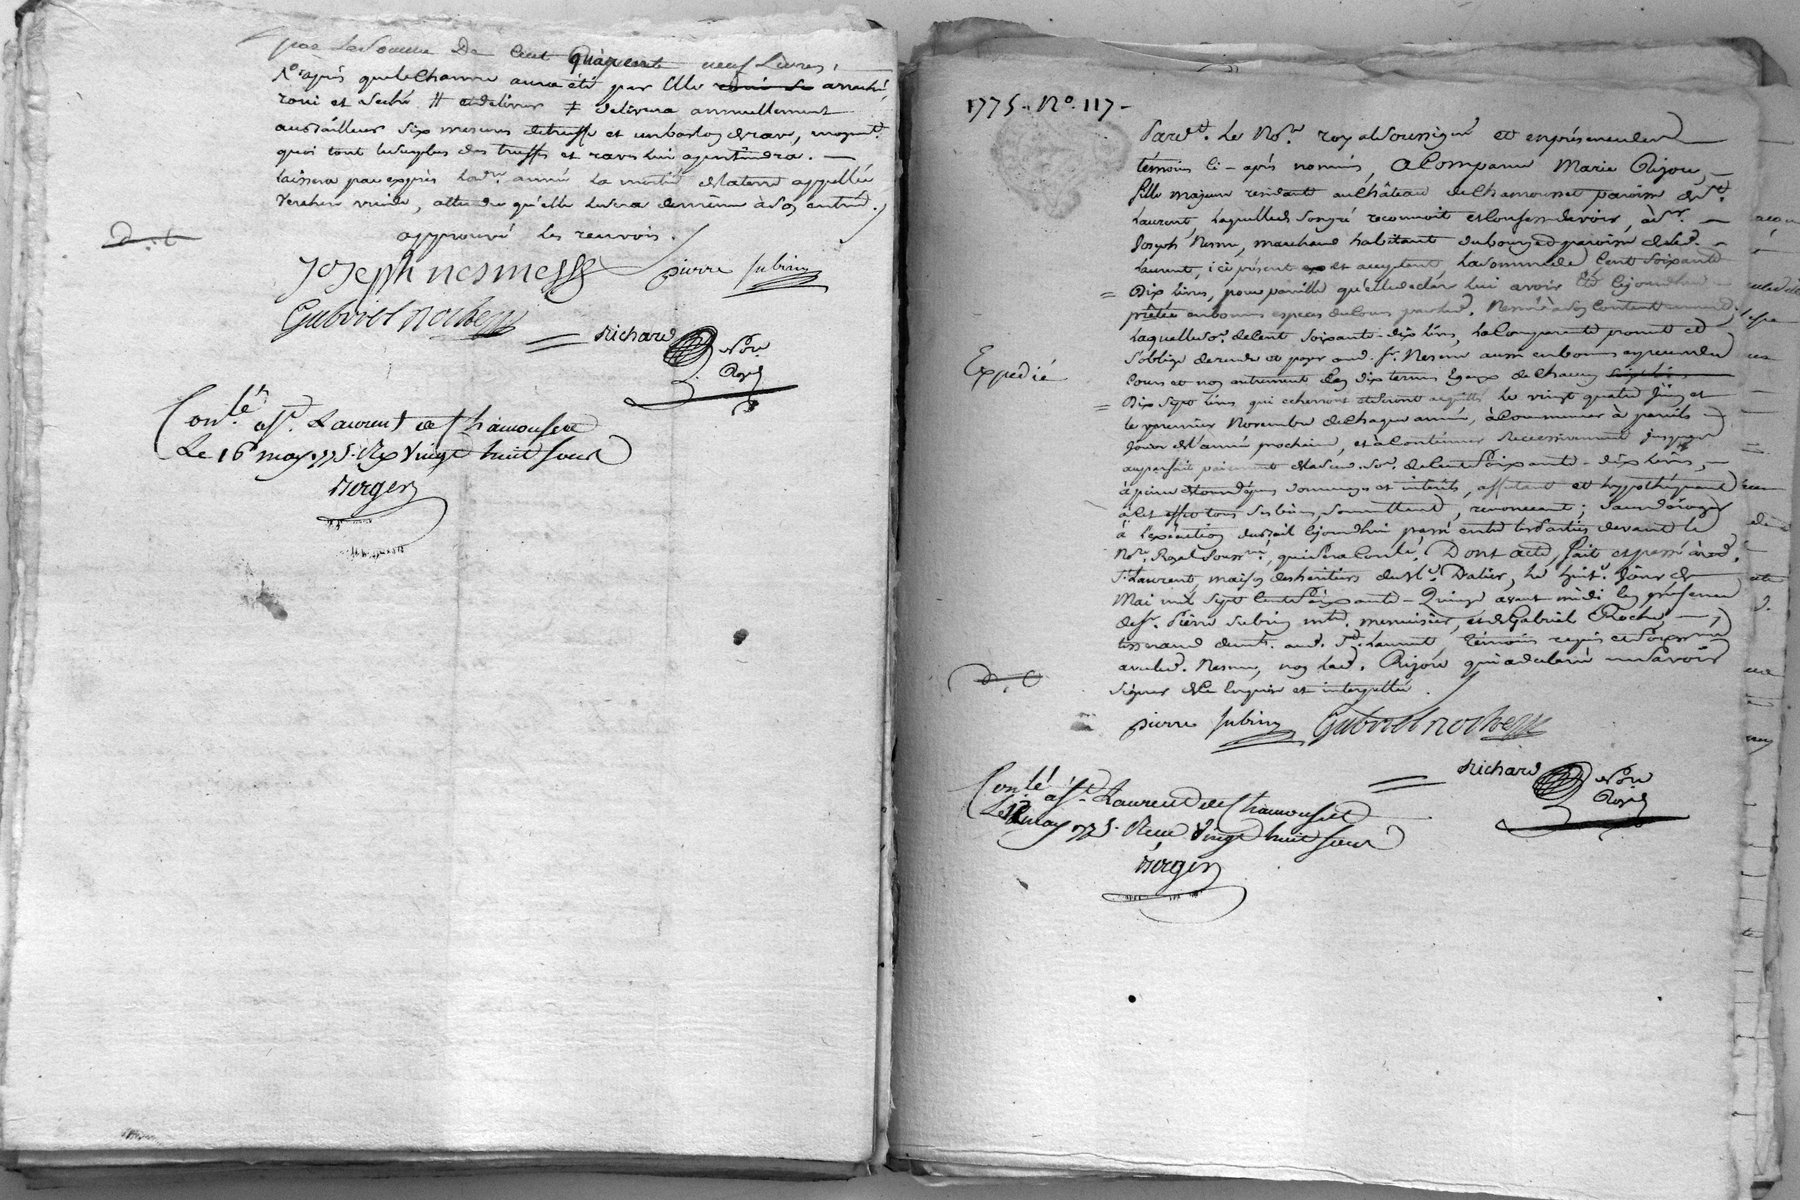 par la somme De Cent Quarente neuf Livres,
après que le Chanvre aura été par Elle arraché,
roui et séché # et delivrer ≠ delivera annuellement
aud. tailleur Six mesures de truffe et un barlog de rave, moyent.
quoi tout le surplus des truffes et raves lui apartiendra. —
laissera par exprès lad. année la moitié de la terre appellée
Verchere vuide, attendu qu'elle le sera de même à son entrée.
approuvé les renvois.
Joseph nesmess pierre Subrin
Gabriel Roche
Richard Not.re
Royal
Con.lé a St. Laurent de Chamousset
Le 16 may 1775. Reçu Vingt huit sous
Berger
1775. No. 117 -
Pard.t Le No.re royal Soussigné et en présence des
témoins ci-après nommés, a Comparu Marie Rijou,
fille majeure residant au Château de Chamousset paroisse de St.
Laurent, laquelle de son gré reconnoit et Confesse devoir, à Sr.
Joseph Nesme, marchand habitant du bourg et paroisse de St.
Laurent, ici présent et acceptant, la somme de Cent Soixante
= Dix livres, pour pareille qu'elle declare lui avoir été Cejourd'hui
prêtée en bonnes especes de Cours par led. Nesme à son Contentement;
laquelle so.e de Cent Soixante-dix livres, la Comparante promet et
s'oblige de rendre et payer aud. Sr. Nesme aussi en bonnes especes du
Expedié
Cours et non autrement en dix termes Egaux de Chacun
= Dix sept livres qui echerront et seront acquittés le vingt quatre Juin et
le premier Novembre de chaque année, à Commencer à pareils
jours de l'année prochaine, et à Continuer Successivement jusques
au parfait paiement de lad. so.e de Cent Soixante-dix livres,
à peine de tous dépens dommages et interêts, affectant et hypothéquant
à Cet effet tous ses biens, Soumettant, renonceant; Sans déroger
à l'exécution du bail Cejourd'hui passé entre les Parties devant le
No.re Royal Souss.né, qui sera Con.lé. Dont acte, fait et passé aud.
St. Laurent, maison des heritiers du Sr. Dalier, le huit.e jour de
Mai mil Sept Cent Soixante-Quinze avant midi en présence
de Sr. Pierre Subrin m.re menuisier, et de Gabriel Roche,
tisserand dem.t aud. St. Laurent, témoins requis et Soussignés
avec led. Nesme, non lad. Rijou qui a declaré ne Savoir
signer de Ce Enquise et interpellée.
pierre Subrin Gabriel Roche
Richard Not.re
Royal
Con.lé a St. Laurent de Chamousset
Le 16 may 1775. Reçu Vingt huit sous
Berger